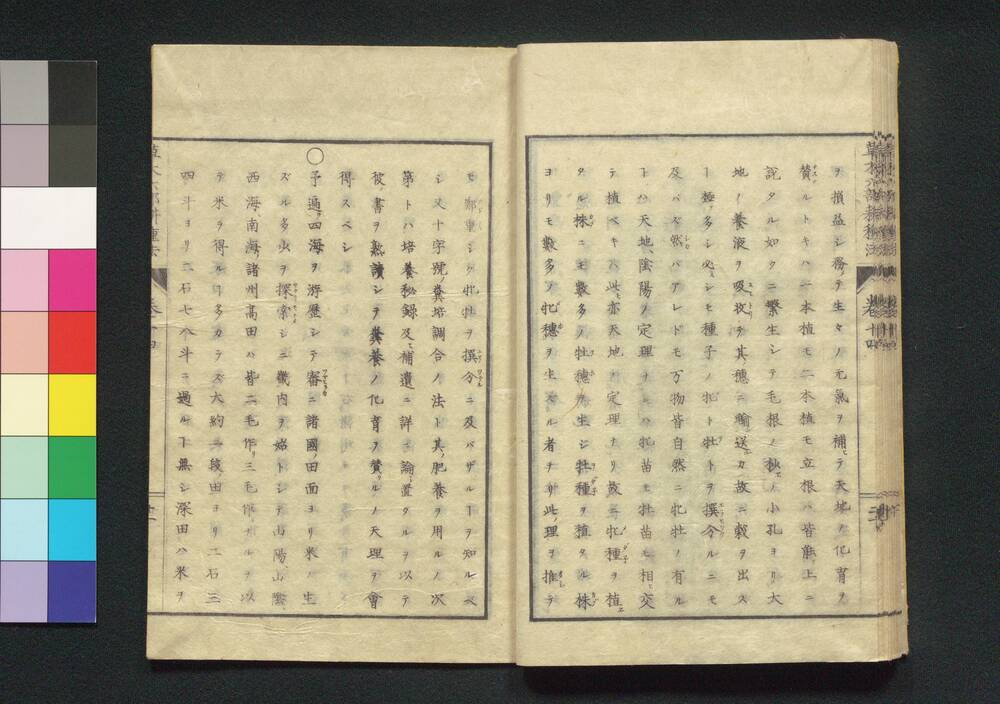 ヲ損益シ務ヲ生々ノ元氣ヲ補ヒテ天地ノ化育ヲ
賛ルトキハ一本植モ二本植モ立根ハ皆能上ニ
説タル如クニ繁生シテ毛根ノ秒ノ小孔ヨリ大
地ノ養液ヲ吸收テ其穗ニ輸送カ故ニ穀ヲ出ス
極多シ必シモ種子ノ牝ト牡トヲ撰分ルニモ
及バズ然ハアレドモ万物皆自然ニ牝牡ノ有ル
ハ天地陰陽ノ定理ナレハ牝苗モ牡苗モ相交
テ植ベキハ此亦天地ノ定理ナリ故ニ牝種ヲ植
タル株ニモ數多ノ牡穗ヲ生シ牡種ヲ植タル株
ヨリモ數多ノ牝穗ヲ生スル者ナリ此理ヲ推テ
モ鄭重シク牝牡ヲ撰分ニ及バザルヿヲ知ルベ
シ又十字號糞培調合ノ法ト其肥養ヲ用ルノ次
第トハ培養秘録及補遺ニ詳ニ論置タルヲ以テ
彼書ヲ熟讀シテ糞養ノ化育ヲ賛ルノ天理ヲ會
得スベシ
〇予遍四海ヲ游歷シテ審ニ諸國ノ田面ヨリ米ノ生
ズル多少ヲ探索シニ畿内ヲ始トシテ山陽山陰
西海南海諸州高田ハ皆二毛作リ三毛作ナルヲ以
テ米ヲ得ル多カラズ大約一段田ヨリ一石三
四斗ヨリ二石七八斗ニ過ルヿ無シ深田ハ米ヲ
卷十四